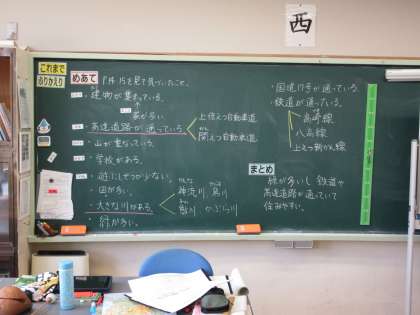 西
これまで
ふりかえり
めあて
P14、15を見て気づいたこと。
・建物が集まっている。
家が多い
・高速道路が通っている。
上信えつ自動車道
関えつ自動車道
・山が連なっている。
・学校がある。
・遊ぶしせつが少ない。
・田が多い。
・大きな川がある。
神流川、烏川
鮎川 かぶら川
・緑が多い。
・国道17号が通っている。
・鉄道が通っている。
高崎線
八高線
上えつ新かん線
まとめ
緑が多いし鉄道や
高速道路が通っていて
住みやすい。